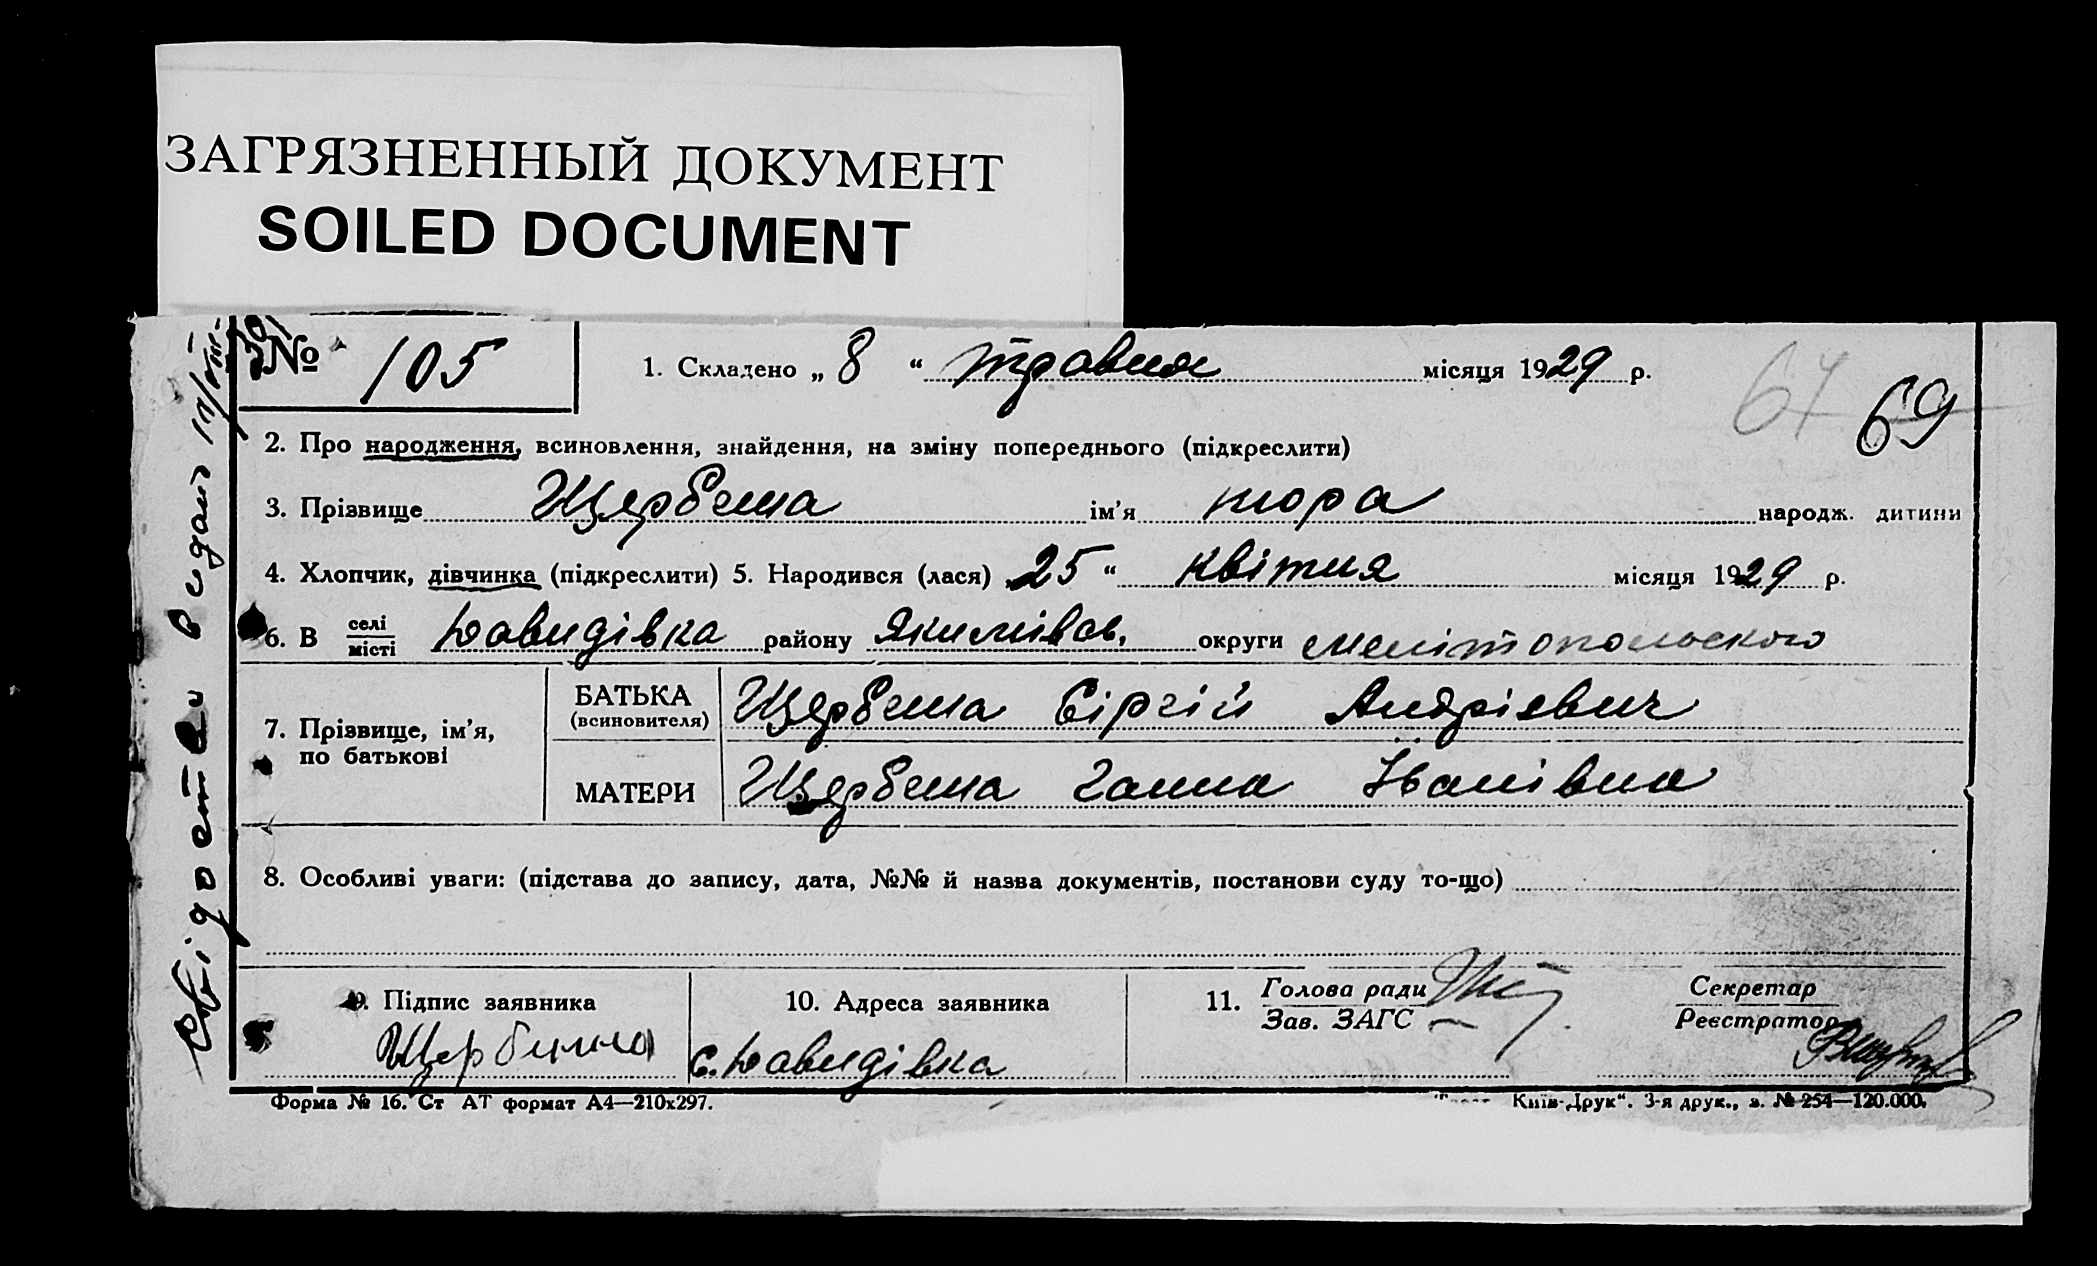 ЗАГРЯЗНЕННЫЙ ДОКУМЕНТ
SOILED DOCUMENT
№ 105
1. Складено „ 8 “ травня місяця 1929 р.
67 69
2. Про народження, всиновлення, знайдення, на зміну попереднього (підкреслити)
3. Прізвище Щербина ім'я нюра народж. дитини
4. Хлопчик, дівчинка (підкреслити) 5. Народився (лася) 25 “ квітня місяця 1929 р.
6. В селі
місті Давидівка району Якимівсь. округи мелітопольского
7. Прізвище, ім'я,
по батькові
БАТЬКА
(всиновителя) Щербина Сіргій Андрієвич
МАТЕРИ Щербина Ганна Іванівна
8. Особливі уваги: (підстава до запису, дата, №№ й назва документів, постанови суду то-що)
9. Підпис заявника
Щербина
10. Адреса заявника
с. Давидівка
11. Голова ради
Зав. ЗАГС
Секретар
Реєстратор
Форма № 16. Ст АТ формат А4—210х297.
Київ-Друк“. 3-я друк., з. № 254—120.000.